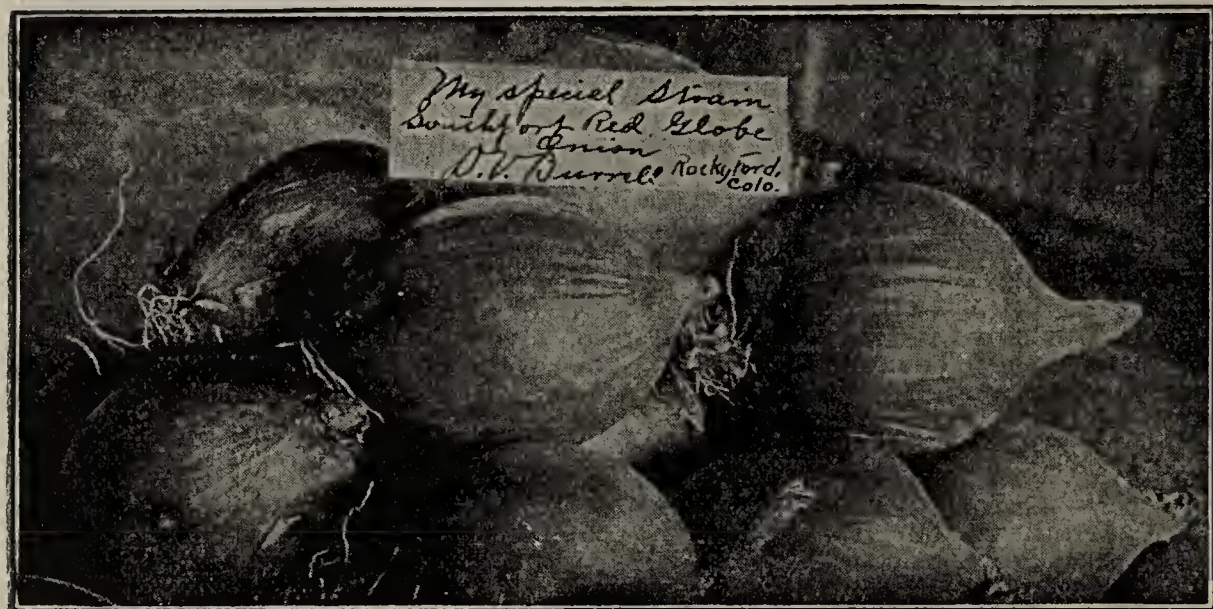 My special Strain
Southport Red Globe
Onion
D.V. Burrell Rockyford,
Colo.